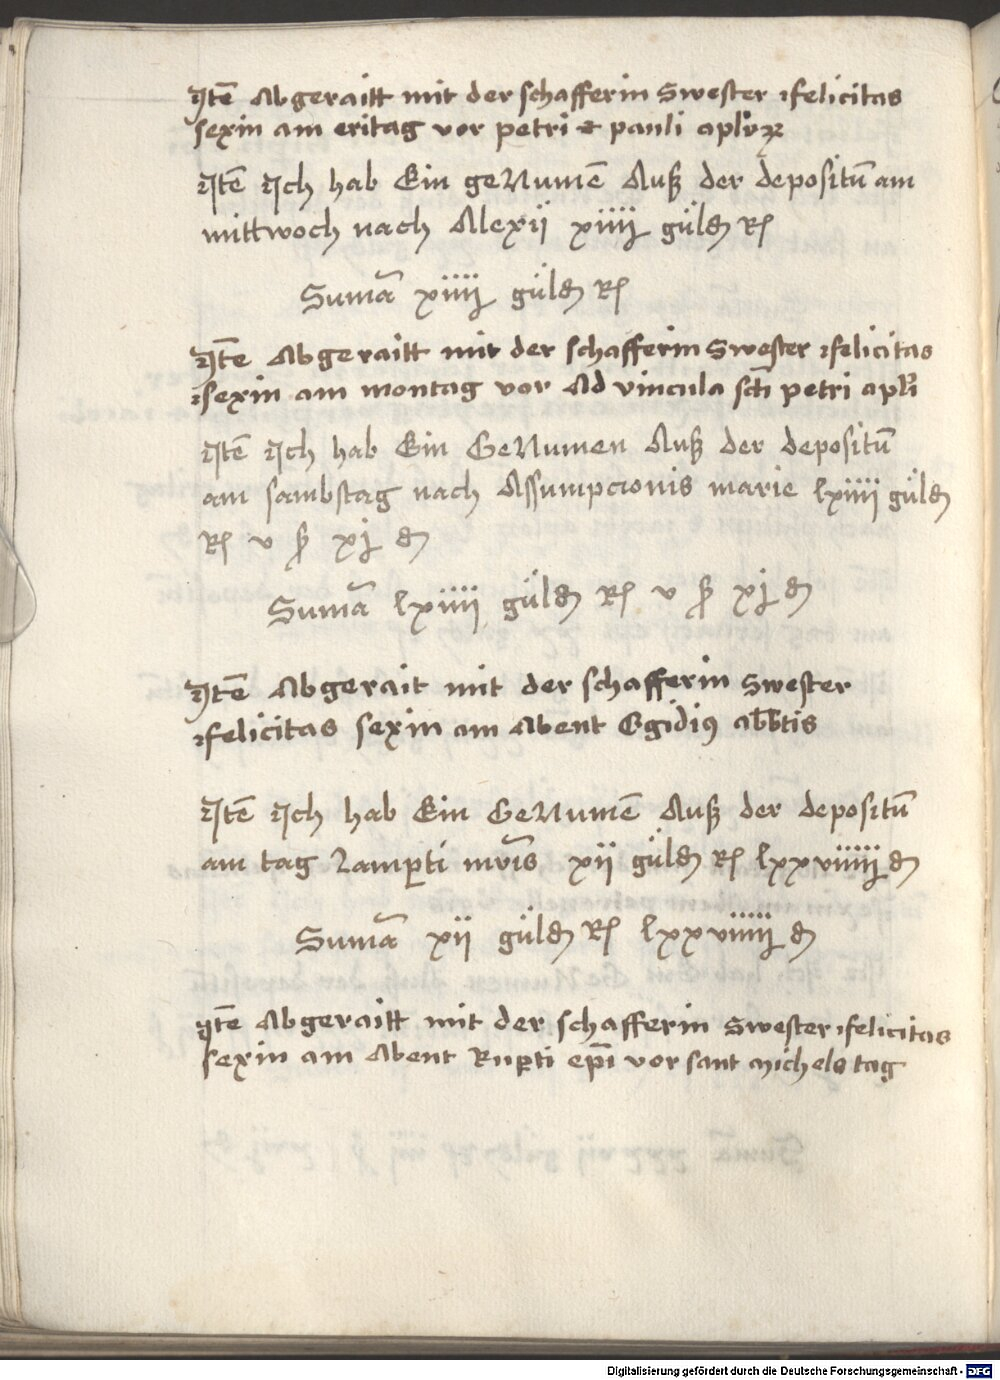 Jtē Abgeraitt mit der schafferin Swester felicitas
sexin am eritag vor petri et pauli aplorꝫ
Jtē Jch hab Ein geNumē Auß der depositū am
mittwoch nach Alexij xiiij güldn Rſ
Sumā xiiij güldn Rſ
Jtē Abgeraitt mit der schafferin Swester felicitas
sexin am montag vor Ad vincula scti petri apli
Jtē Jch hab Ein GeNumen Auß der depositū
am sambstag nach Assumpcionis marie lxiiii güldn
Rſ v ß xj dn
Sumā lxiiii güldn Rſ v ß xj dn
Jtē Abgerait mit der schafferin Swester
felicitas sexin am Abent Egidiꝰ abbtis
Jtē Jch hab Ein GeNumē Auß der depositū
am tag Lamꝑti mris xii güldn Rſ lxxviiiij dn
Sumā xii güldn Rſ lxxviiiij dn
Jtē Abgeraitt mit der schafferin Swester felicitas
sexin am Abent Ruꝑti epi vor sant Michels tag
Digitalisierung gefördert durch die Deutsche Forschungsgemeinschaft - DFG